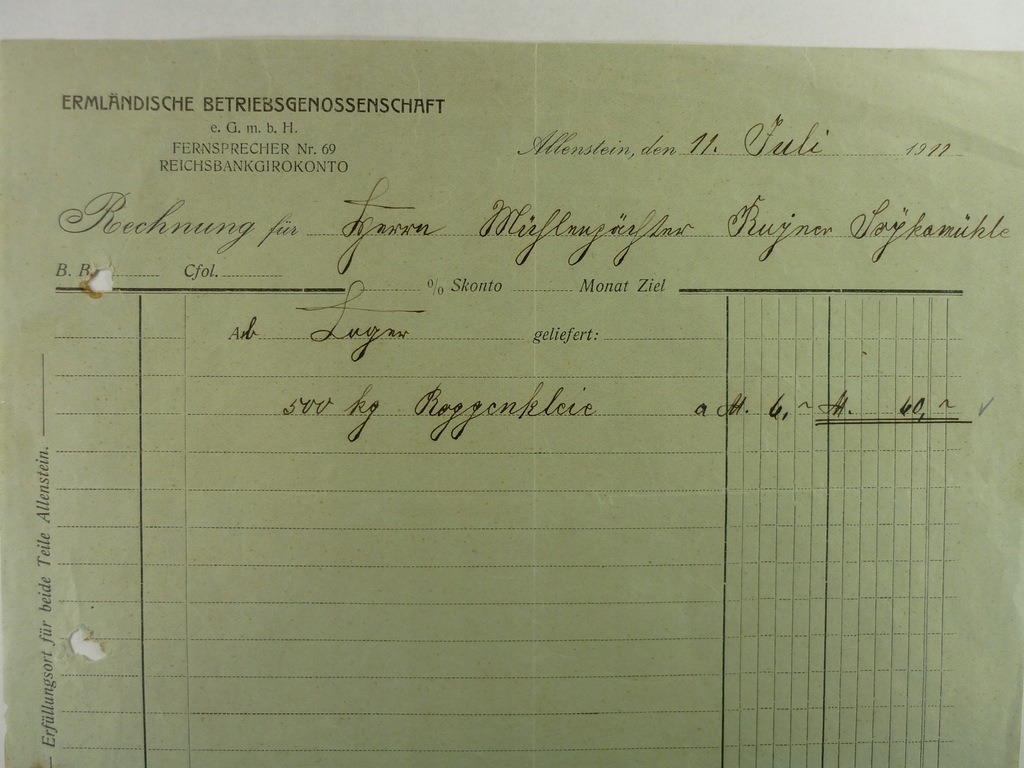 ERMLÄNDISCHE BETRIEBSGENOSSENSCHAFT
e. G. m. b. H.
FERNSPRECHER Nr. 69
REICHSBANKGIROKONTO
Allenstein, den 11. Juli 1911
Rechnung für Herrn Mühlenpächter Soykamühle
B. B. Cfol.
% Skonto Monat Ziel
Ab Lager geliefert:
500 kg Roggenkleie a M. 6,~ M. 60,~
Erfüllungsort für beide Teile Allenstein.